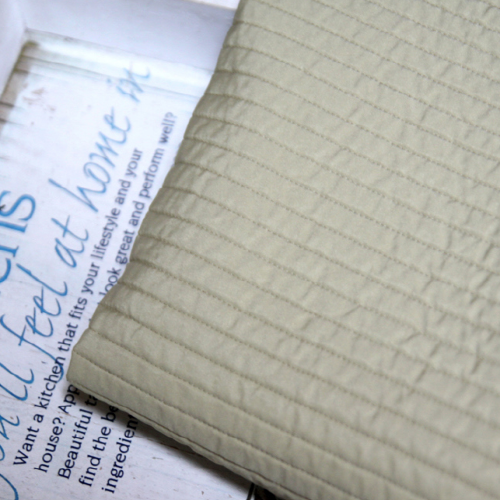 ens
you'll feel at home in
Want a kitchen that fits your lifestyle and your
house? look great and perform well?
Beautiful
find the
ingredien